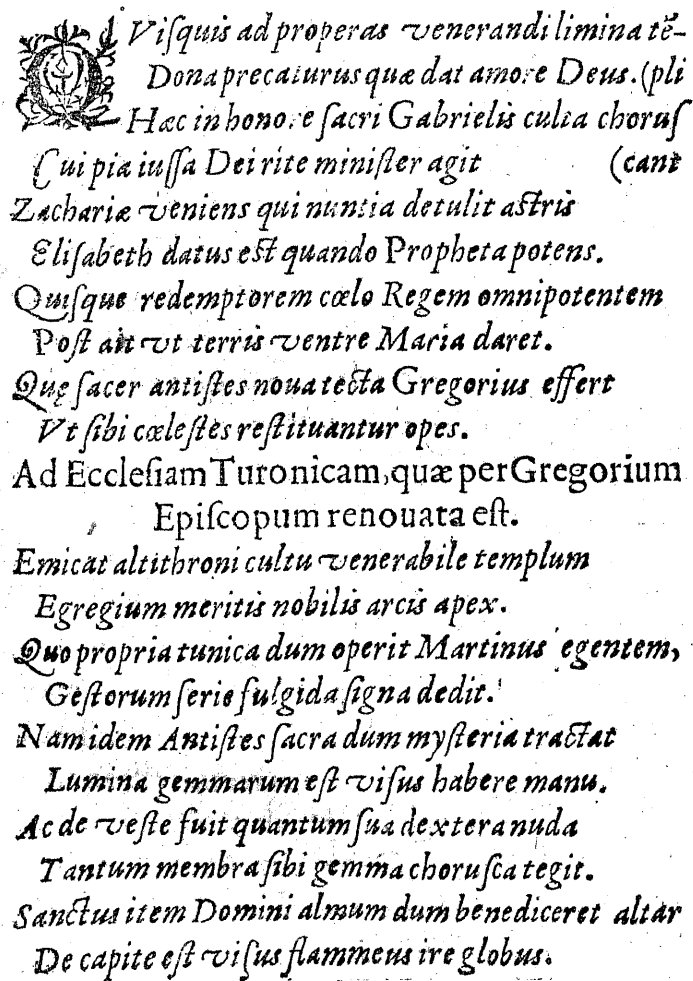 QVisquis ad properas venerandi limina tē-
Dona precaturus quæ dat amore Deus. (pli
Hæc in honore sacri Gabrielis culta choruſ
Cui pia iuſſa Dei rite miniſter agit (cant
Zachariæ veniens qui nuntia detulit aſtris
Eliſabeth datus eſt quando Propheta potens.
Quiſque redemptorem cœlo Regem omnipotentem
Poſt ait vt terris ventre Maria daret.
Quę ſacer antiſtes noua tecta Gregorius effert
Vt ſibi cœleſtes reſtituantur opes.
Ad Eccleſiam Turonicam, quæ per Gregorium
Epiſcopum renouata eſt.
Emicat altithroni cultu venerabile templum
Egregium meritis nobilis arcis apex.
Quo propria tunica dum operit Martinus egentem,
Geſtorum ſerie fulgida ſigna dedit.
Nam idem Antiſtes ſacra dum myſteria tractat
Lumina gemmarum eſt viſus habere manu.
Ac de veſte fuit quantum ſua dextera nuda
Tantum membra ſibi gemma choruſca tegit.
Sanctus item Domini almum dum benediceret altar
De capite eſt viſus flammeus ire globus.